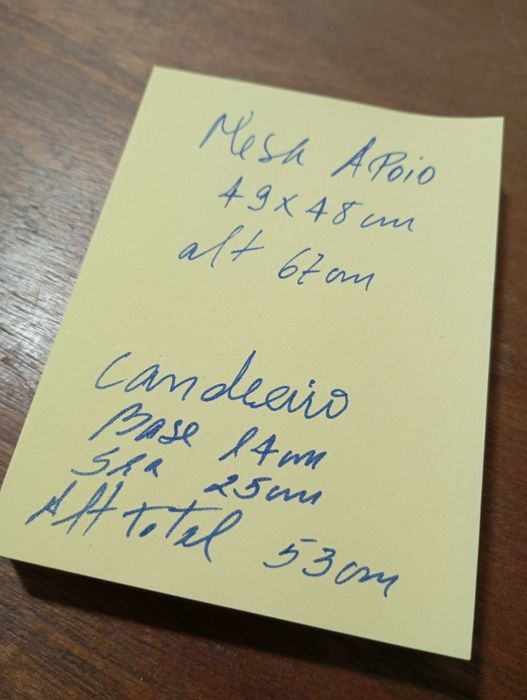 Mesa Apoio
49x48cm
alt 67cm
Candeeiro
Base 14cm
25cm
Alt total 53cm